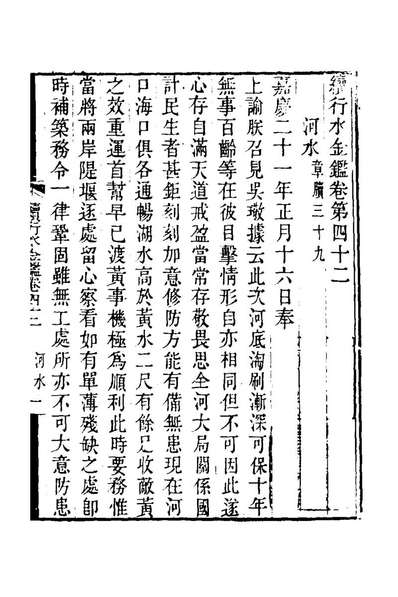 續行水金鑑卷第四十二
河水章牘三十九
嘉慶二十一年正月十六日奉
上諭朕召見吳璥據云此次河底淘刷漸深可保十年
無事百齡等在彼目擊情形自亦相同但不可因此遂
心存自滿天道戒盈當常存敬畏思全河大局關係國
計民生者甚鉅刻刻加意修防方能有備無患現在河
口海口俱各通暢湖水高於黃水二尺有餘足收敵黃
之效重運首幫早已渡黃事機極為順利此時要務惟
當將兩岸隄堰逐處留心察看如有單薄殘缺之處卽
時補築務令一律鞏固雖無工處所亦不可大意防患
續行水金鑑卷四十二
河水一